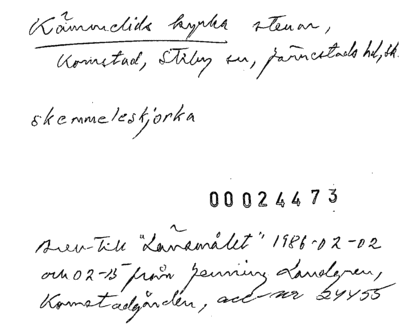 Kämmelids kyrka stenar,
Komstad, Stiby sn, Järrestads hd, Sk.
skemmeleskjorka
00024473
Brev till "Lantmålet" 1986-02-02
och 02-15 från Henning Landgren,
Komstadgården, acc nr 24455